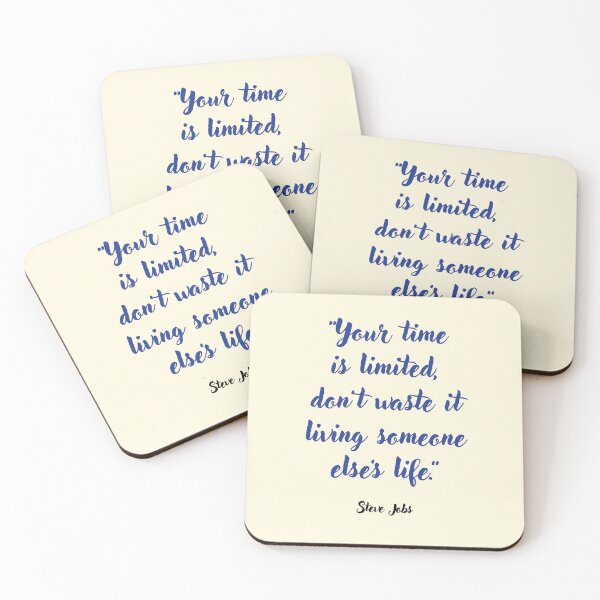 "Your time
is limited,
don't waste it
someone
"
"Your time
is limited,
don't waste it
living someone
else's life."
"Your time
is limited,
don't waste it
living someone
else's life
Steve Jobs
"Your time
is limited,
don't waste it
living someone
else's life."
Steve Jobs